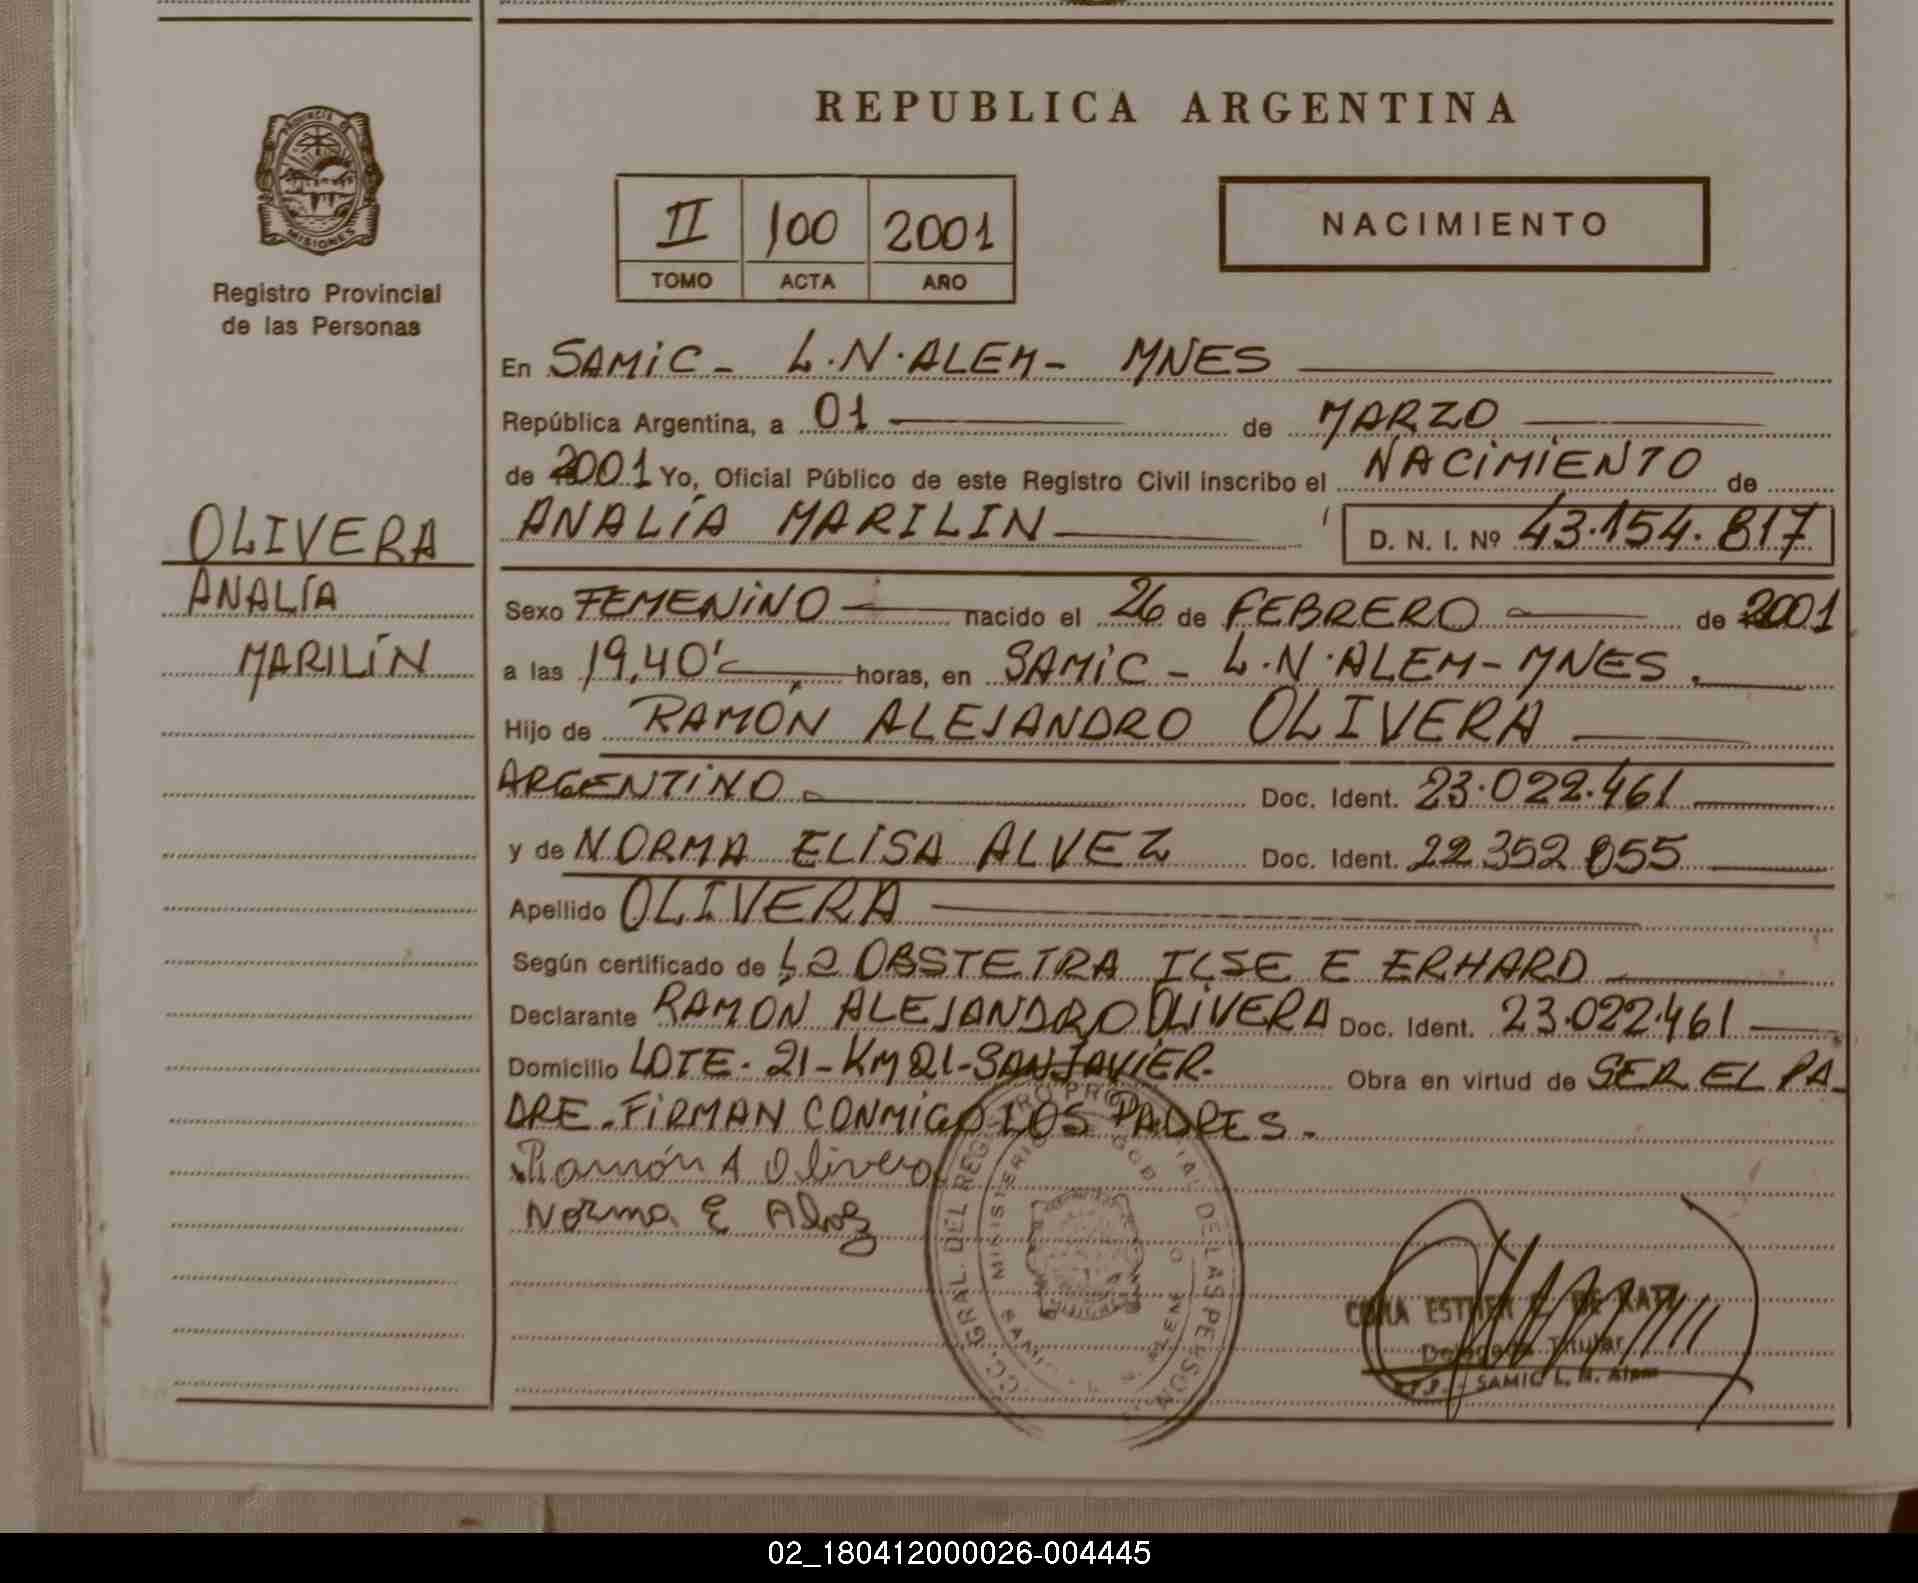 REPUBLICA ARGENTINA
PROVINCIA DE
MISIONES
Registro Provincial
de las Personas
II 100 2001
TOMO ACTA AÑO
NACIMIENTO
OLIVERA
ANALÍA
MARILÍN
En SAMIC - L.N.ALEM - MNES
República Argentina, a 01 de MARZO
de 2001 Yo, Oficial Público de este Registro Civil inscribo el NACIMIENTO de
ANALÍA MARILIN D. N. I. Nº 43.154.817
Sexo FEMENINO nacido el 26 de FEBRERO de 2001
a las 19,40' horas, en SAMIC - L.N.ALEM - MNES.
Hijo de RAMON ALEJANDRO OLIVERA
ARGENTINO Doc. Ident. 23.022.461
y de NORMA ELISA ALVEZ Doc. Ident. 22 352 055
Apellido OLIVERA
Según certificado de La OBSTETRA ILSE E ERHARD
Declarante RAMÓN ALEJANDRO OLIVERA Doc. Ident. 23.022.461
Domicilio LOTE - 21 - KM 21 - SAN JAVIER - Obra en virtud de SER EL PA-
DRE. FIRMAN CONMIGO LOS PADRES.-
Ramón A Olivera
Norma E Alvez
GRAL. DEL REGISTRO PROVINCIAL DE LAS PERSON
MINISTERIO DE GOB
ESTHER
Delegada Titular
SAMIC L. N. Alem
02_180412000026-004445